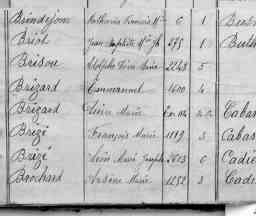 Brindejon Mathurin Francois Mie 6 1
Briot Jean Baptiste Mie Jh 595 1
Brisou Adolphe Pierre Marie 2243 5
Brizard Emmanuel 1400 4
Brizard Pierre Marie Caba
Brizé François Marie 1119 3 Cabas
Brizé Marie Joseph 0 Cadie
Brochard Arsène Marie 1252 3 Cadi